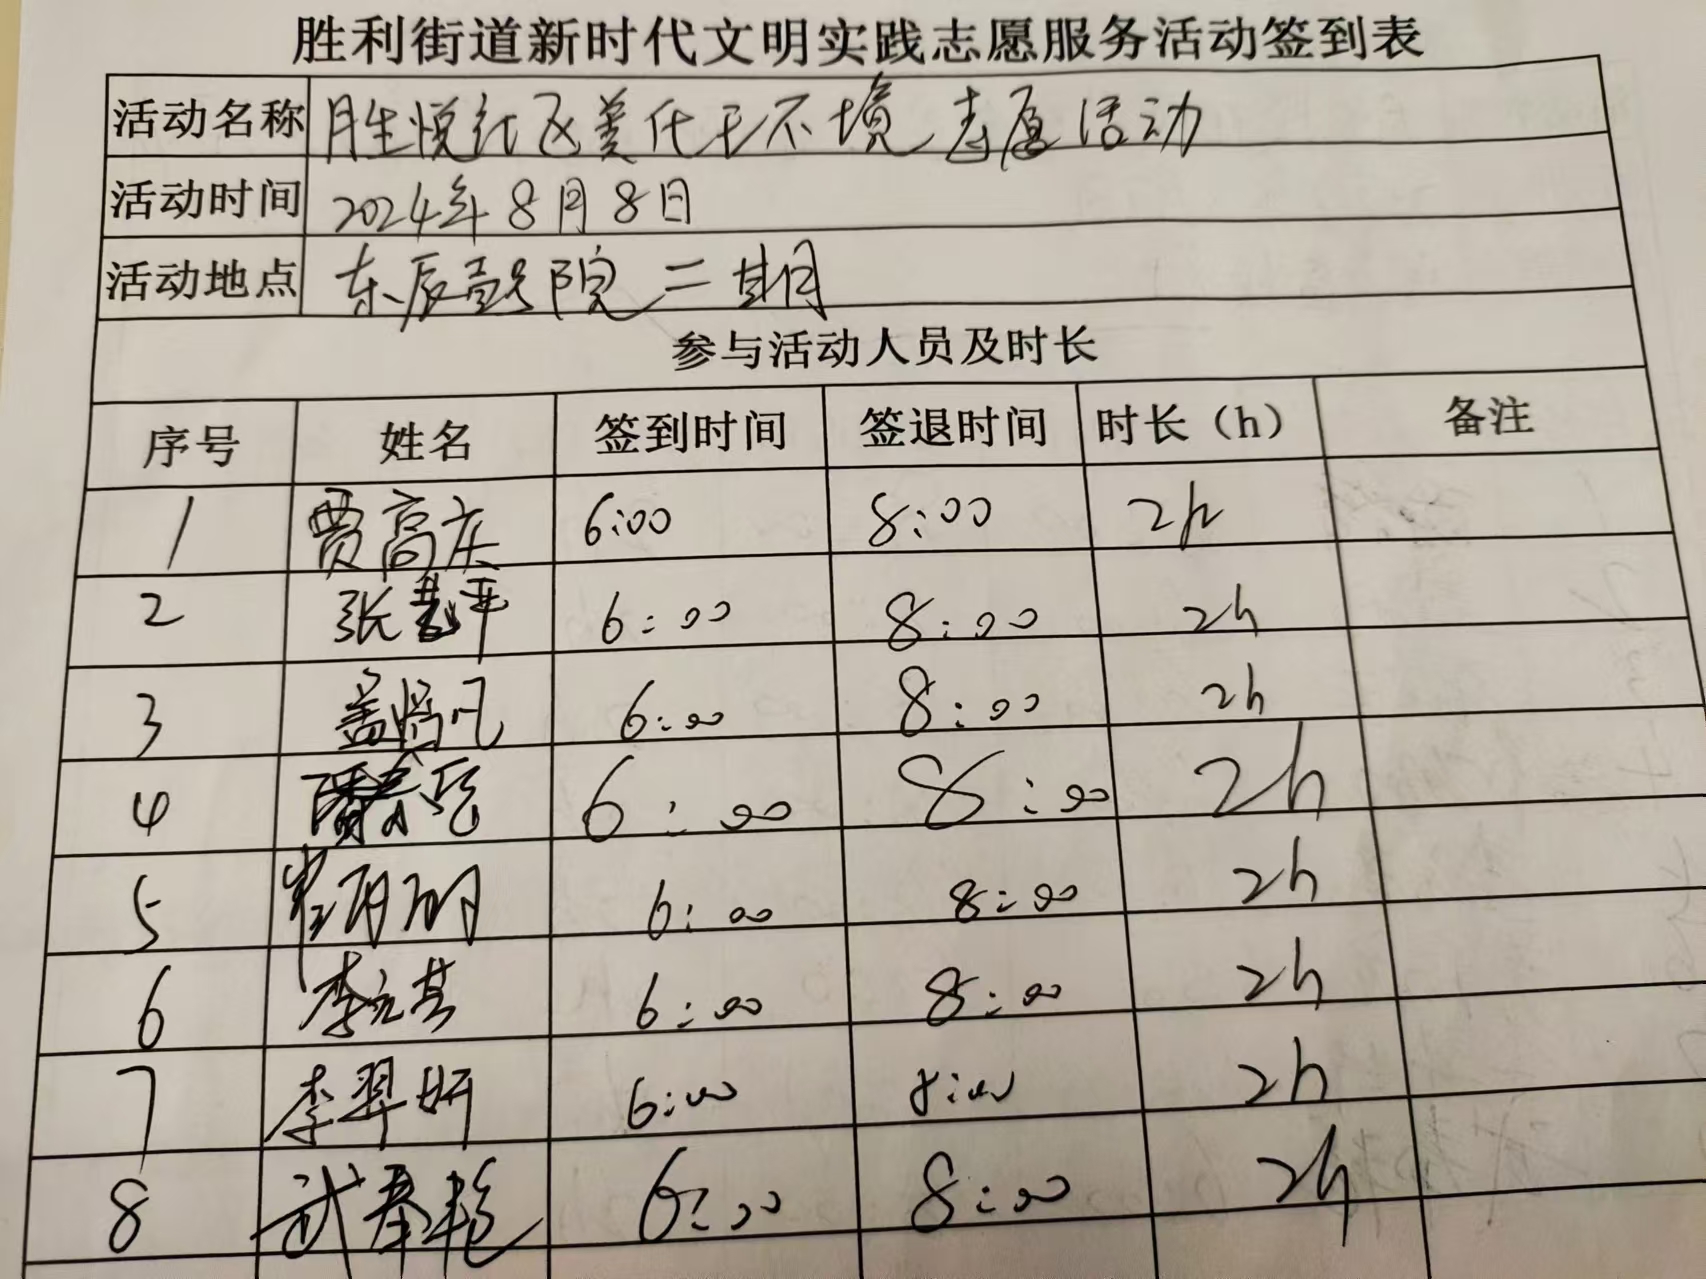 胜利街道新时代文明实践志愿服务活动签到表
活动名称 胜悦社区美化环境志愿活动
活动时间 2024年8月8日
活动地点 东辰院二期
参与活动人员及时长
序号 姓名 签到时间 签退时间 时长（h） 备注
1 贾高庆 6:00 8:00 2h
2 张平 6:00 8:00 2h
3 盖凡 6:00 8:00 2h
4 6:00 8:00 2h
5 崔明明 6:00 8:00 2h
6 李元芸 6:00 8:00 2h
7 李翠妍 6:00 8:00 2h
8 武春艳 6:00 8:00 2h